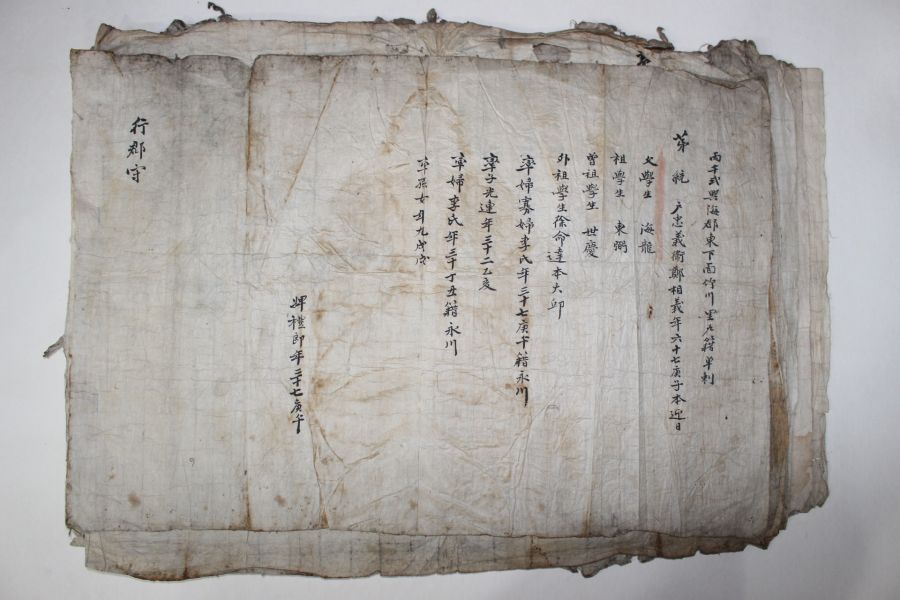 丙午式興海郡東下面竹川里戶籍單刺
第 統 戶忠義衛鄭相義年六十七庚子本迎日
父學生 海龍
祖學生 東弼
曾祖學生 世慶
外祖學生徐命達本大邱
率婦寡婦李氏年三十七庚午籍永川
率子光連年三十二乙亥
率婦李氏年三十丁丑籍永川
率孫女年九戊戌
婢禮即年三十七庚午
行郡守